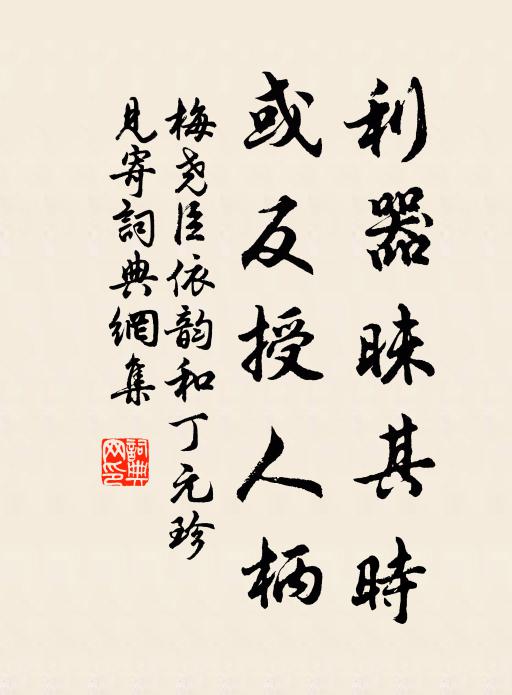 利器昧其時
或反授人柄
梅尧臣依韵和丁元珍
見寄詞典網集
詞典網印